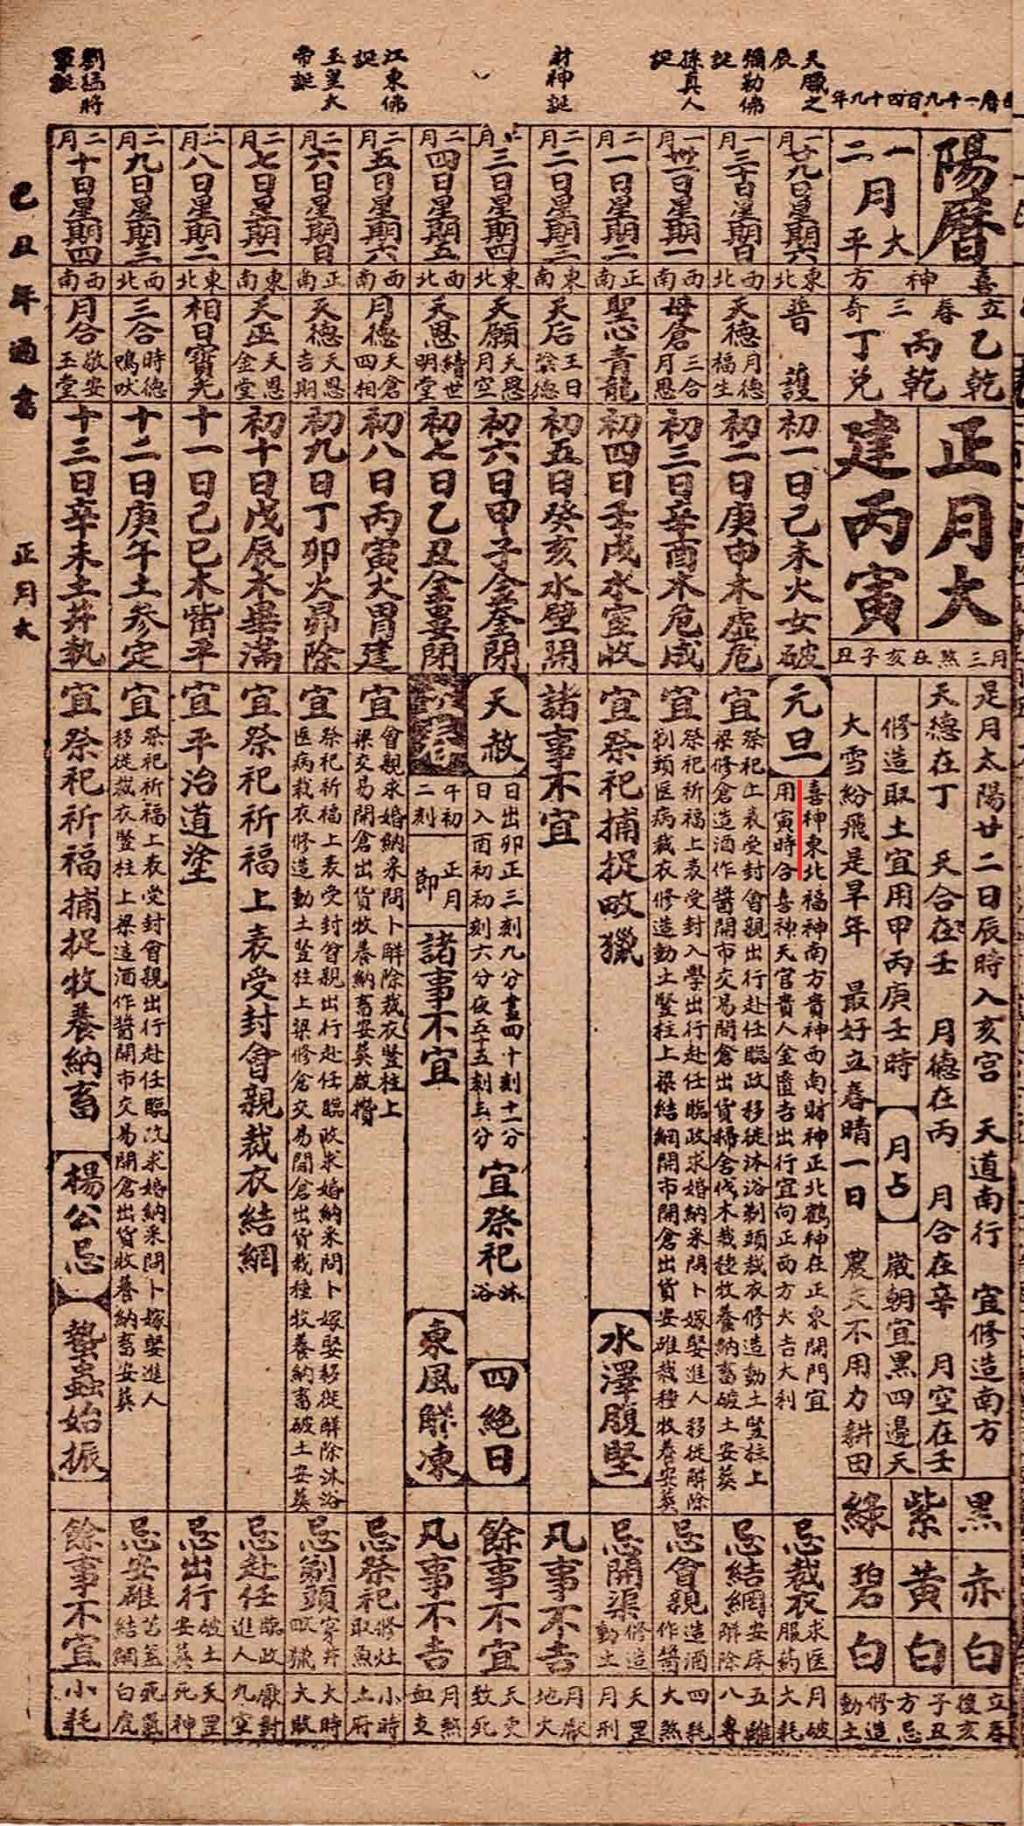 西曆一千九百四十九年
天臘之辰
彌勒佛誕
孫真人誕
財神誕
江東佛誕
玉皇大帝誕
劉猛將軍誕
己丑年通書
正月大
陽曆
一月大
二月平
喜神方
立春三奇
乙乾
丙乾
丁兌
正月大
建丙寅
月三煞在亥子丑
是月太陽廿二日辰時入亥宮 天道南行 宜修造南方
天德在丁 天合在壬 月德在丙 月合在辛 月空在壬
修造取土宜用甲丙庚壬時
月占
歲朝宜黑四邊天
大雪紛飛是旱年 最好立春晴一日 農夫不用力耕田
黑紫綠
赤黃碧
白白白
立春後亥子丑方忌修造動土
一月廿九日星期六
東北
普護
初一日己未火女破
元旦
喜神東北福神南方貴神西南財神正北鶴神在正東開門宜
用寅時合喜神天官貴人金匱吉出行宜向正西方大吉大利
忌裁衣
求医服药
月破大耗
一月三十日星期日
西北
天德
月德福生
初二日庚申木虛危
宜
祭祀上表受封會親出行赴任臨政移徙沐浴剃頭裁衣修造動土豎柱上
梁修倉造酒作醬開市交易開倉出貨掃舍伐木栽種牧養納畜破土安葬
忌結網
安床酧除
五離八專
一月卅一日星期一
西南
母倉
三合月恩
初三日辛酉木危成
宜
祭祀祈福上表受封入學出行赴任臨政求婚納采問卜嫁娶進人移徙解除
剃頭医病裁衣修造動土豎柱上梁結網開市開倉出貨安碓栽種牧養安葬
忌會親
造酒作醬
四耗大煞
二月一日星期二
正南
聖心青龍
初四日壬戌水室收
宜祭祀捕捉畋獵
水澤腹堅
忌開渠
修造動土
天罡月刑
二月二日星期三
東南
天后
王日陰德
初五日癸亥水壁開
諸事不宜
凡事不吉
月厭地火
二月三日星期四
東北
天願
天恩月空
初六日甲子金奎閉
天赦
日出卯正三刻九分晝四十刻十二分
日入酉初初刻六分夜五十五刻三分
宜祭祀
沐浴
四絕日
餘事不宜
天吏致死
二月四日星期五
西北
天恩
續世明堂
初七日乙丑金婁閉
立春
午初二刻
正月節
諸事不宜
東風解凍
凡事不吉
月煞血支
二月五日星期六
西南
月德
天倉四相
初八日丙寅火胃建
宜
會親求婚納采問卜解除裁衣豎柱上
梁交易開倉出貨牧養納畜安葬啟攢
忌祭祀
修灶取魚
小時土府
二月六日星期日
正南
天德
天恩吉期
初九日丁卯火昴除
宜
祭祀祈福上表受封會親出行赴任臨政求婚納采問卜嫁娶移徙解除沐浴
医病裁衣修造動土豎柱上梁修倉交易開倉出貨栽種牧養納畜破土安葬
忌剃頭
穿井畋獵
大時大敗
二月七日星期一
東南
天巫
天恩金堂
初十日戊辰木畢滿
宜祭祀祈福上表受封會親裁衣結網
忌赴任
臨政進人
厭對九空
二月八日星期二
東北
相日寶光
十一日己巳木觜平
宜平治道塗
忌出行
破土安葬
天罡死神
二月九日星期三
西北
三合
時德鳴吠
十二日庚午土參定
宜
祭祀祈福上表受封會親出行赴任臨政求婚納采問卜嫁娶進人
移徙裁衣豎柱上梁造酒作醬開市交易開倉出貨牧養納畜安葬
忌安碓
苫蓋結網
死氣白虎
二月十日星期四
西南
月合
敬安玉堂
十三日辛未土井執
宜祭祀祈福捕捉牧養納畜
楊公忌
蟄蟲始振
餘事不宜
小耗